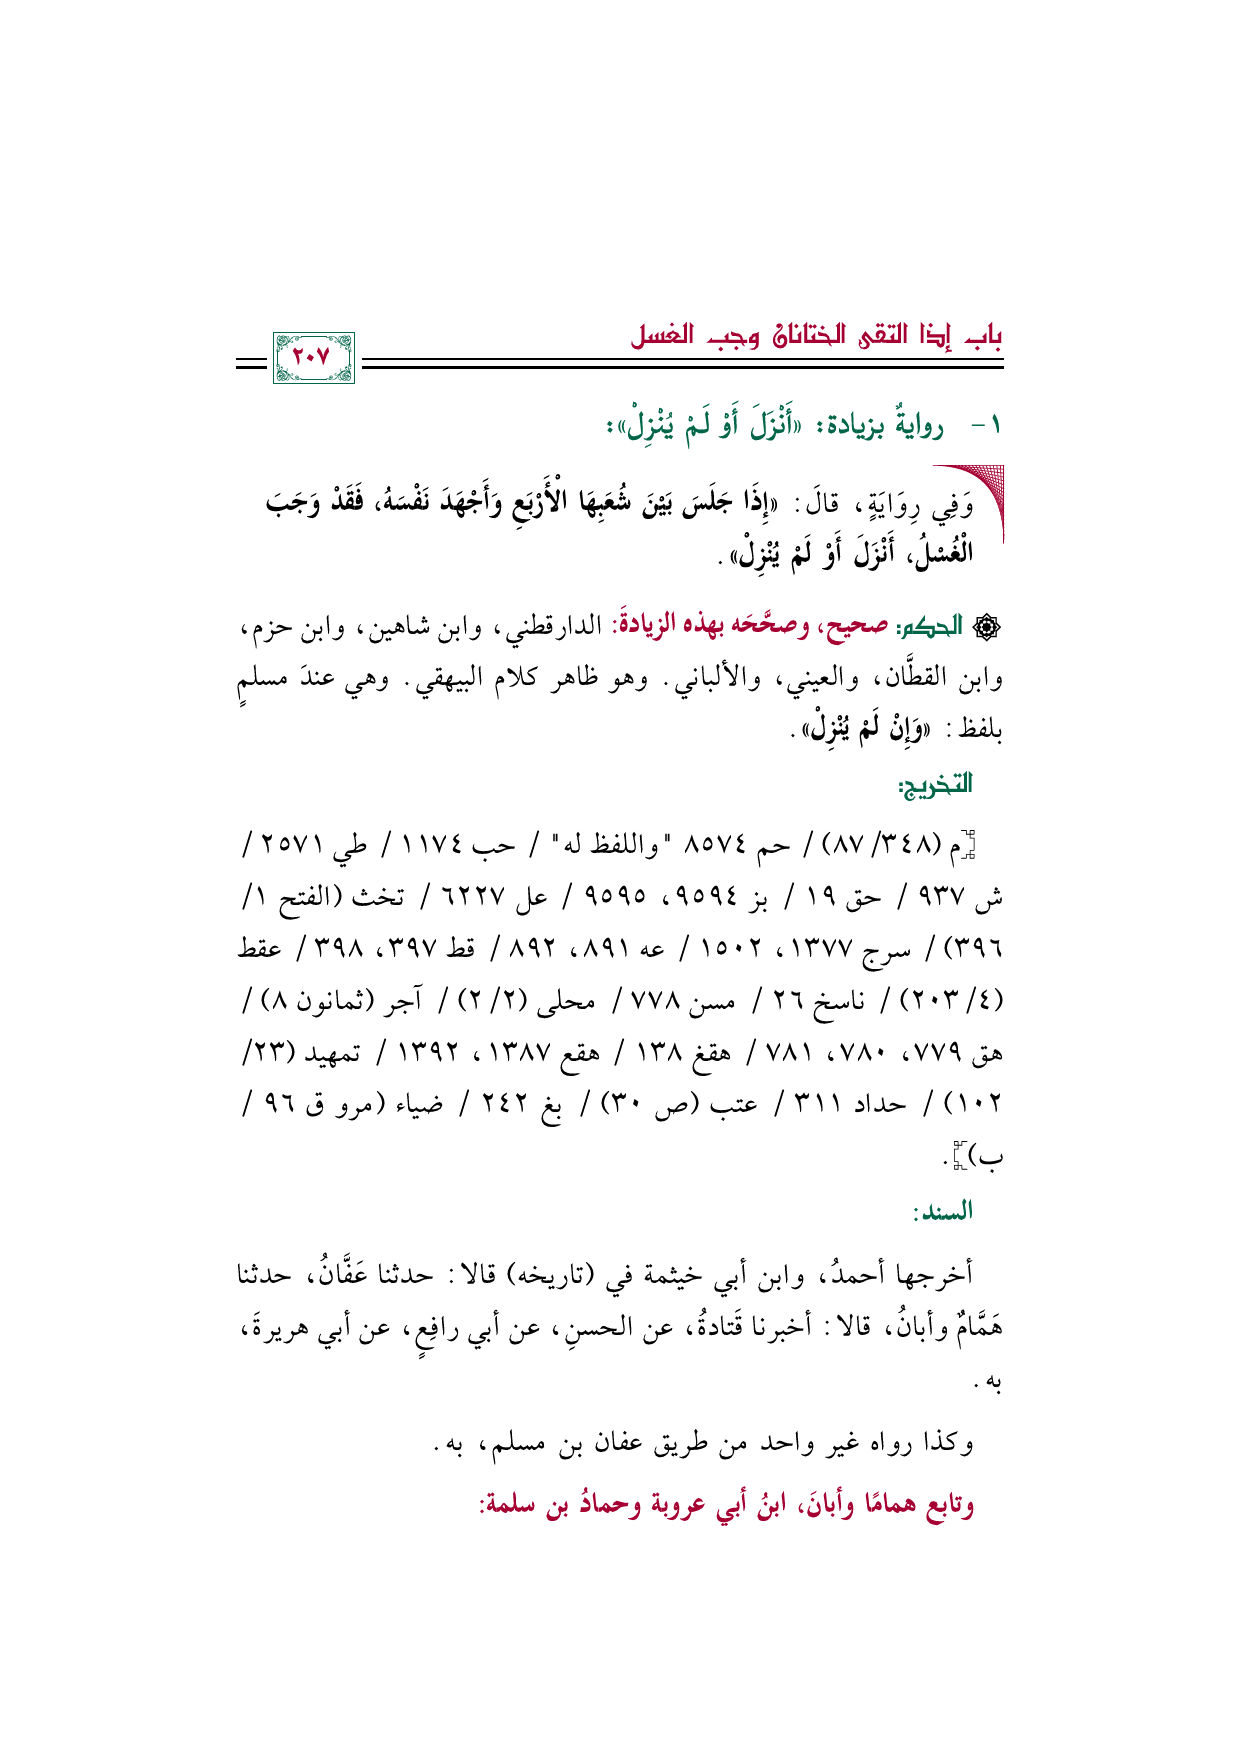 باب إذا التقى الختانان وجب الغسل
٢٠٧
١- روايةٌ بزيادة: «أَنْزَلَ أَوْ لَمْ يُنْزِلْ»:
وَفِي رِوَايَةٍ، قالَ: «إِذَا جَلَسَ بَيْنَ شُعَبِهَا الْأَرْبَعِ وَأَجْهَدَ نَفْسَهُ، فَقَدْ وَجَبَ
الْغُسْلُ، أَنْزَلَ أَوْ لَمْ يُنْزِلْ».
الحكم: صحيح، وصحَّحَه بهذه الزيادةَ: الدارقطني، وابن شاهين، وابن حزم،
وابن القطَّان، والعيني، والألباني. وهو ظاهر كلام البيهقي. وهي عندَ مسلمٍ
بلفظ: «وَإِنْ لَمْ يُنْزِلْ».
التخريج:
[م (٣٤٨/ ٨٧) / حم ٨٥٧٤ "واللفظ له" / حب ١١٧٤ / طي ٢٥٧١ /
ش ٩٣٧ / حق ١٩ / بز ٩٥٩٤، ٩٥٩٥ / عل ٦٢٢٧ / تخث (الفتح ١/
٣٩٦) / سرج ١٣٧٧، ١٥٠٢ / عه ٨٩١، ٨٩٢ / قط ٣٩٧، ٣٩٨ / عقط
(٤/ ٢٠٣) / ناسخ ٢٦ / مسن ٧٧٨ / محلى (٢/ ٢) / آجر (ثمانون ٨) /
هق ٧٧٩، ٧٨٠، ٧٨١ / هقغ ١٣٨ / هقع ١٣٨٧، ١٣٩٢ / تمهيد (٢٣/
١٠٢) / حداد ٣١١ / عتب (ص ٣٠) / بغ ٢٤٢ / ضياء (مرو ق ٩٦ /
ب)].
السند:
أخرجها أحمدُ، وابن أبي خيثمة في (تاريخه) قالا: حدثنا عَفَّانُ، حدثنا
هَمَّامٌ وأبانُ، قالا: أخبرنا قَتادةُ، عن الحسنِ، عن أبي رافِعٍ، عن أبي هريرةَ،
به.
وكذا رواه غير واحد من طريق عفان بن مسلم، به.
وتابع همامًا وأبانَ، ابنُ أبي عروبة وحمادُ بن سلمة: